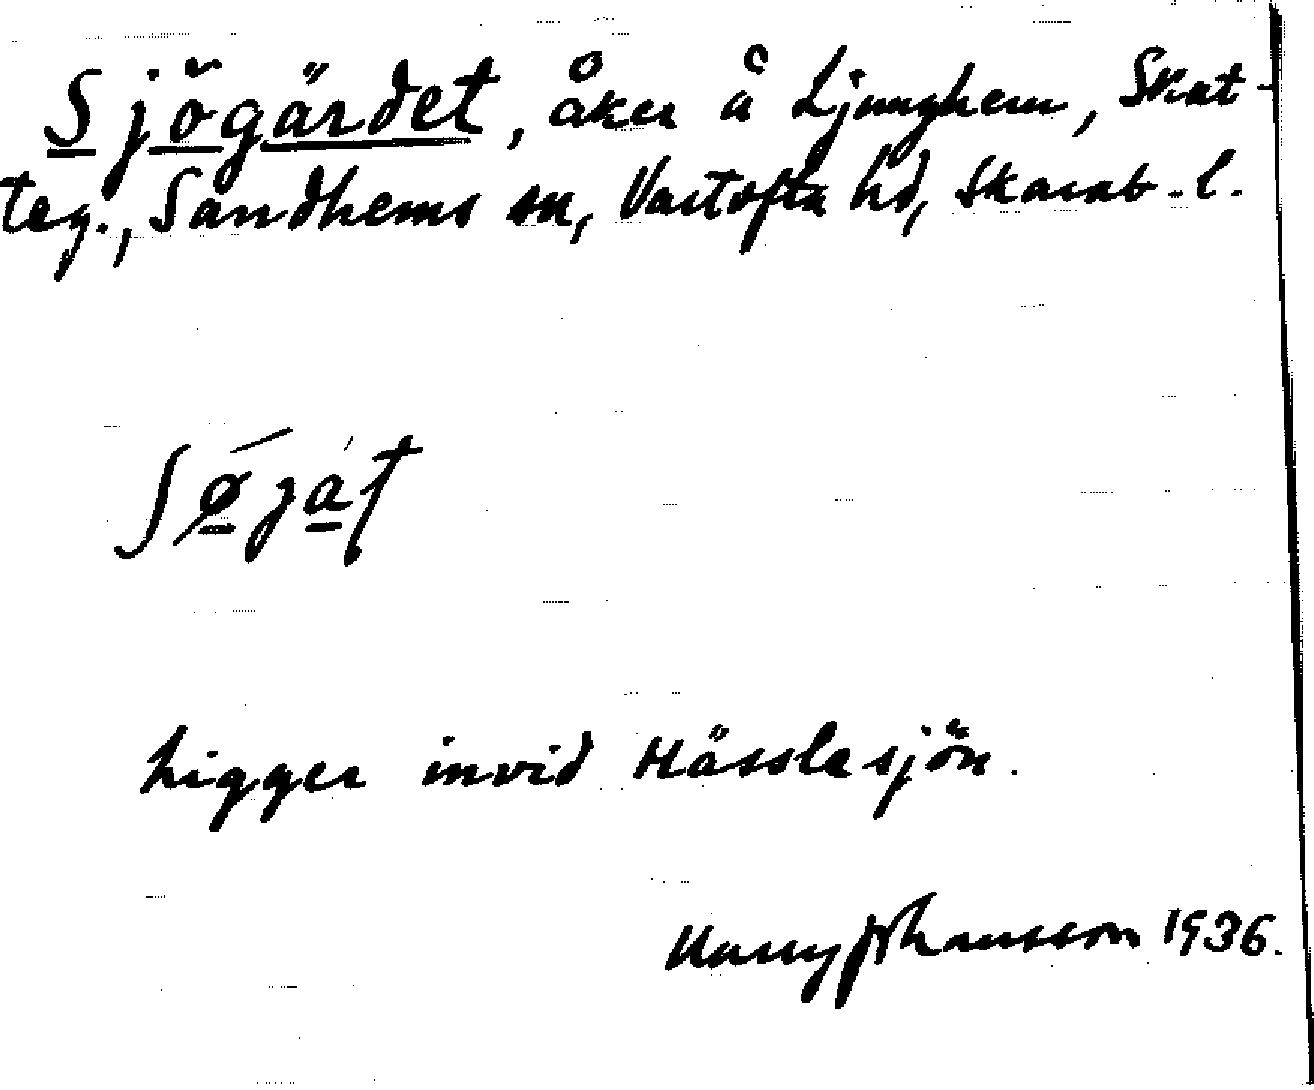 Sjögärdet, åker å Ljunghem, Skat-
teg., Sandhems sn, Vartofta hd, Skarab.l.
Ligger invid Hässlesjön.
Harry Johansson 1936.